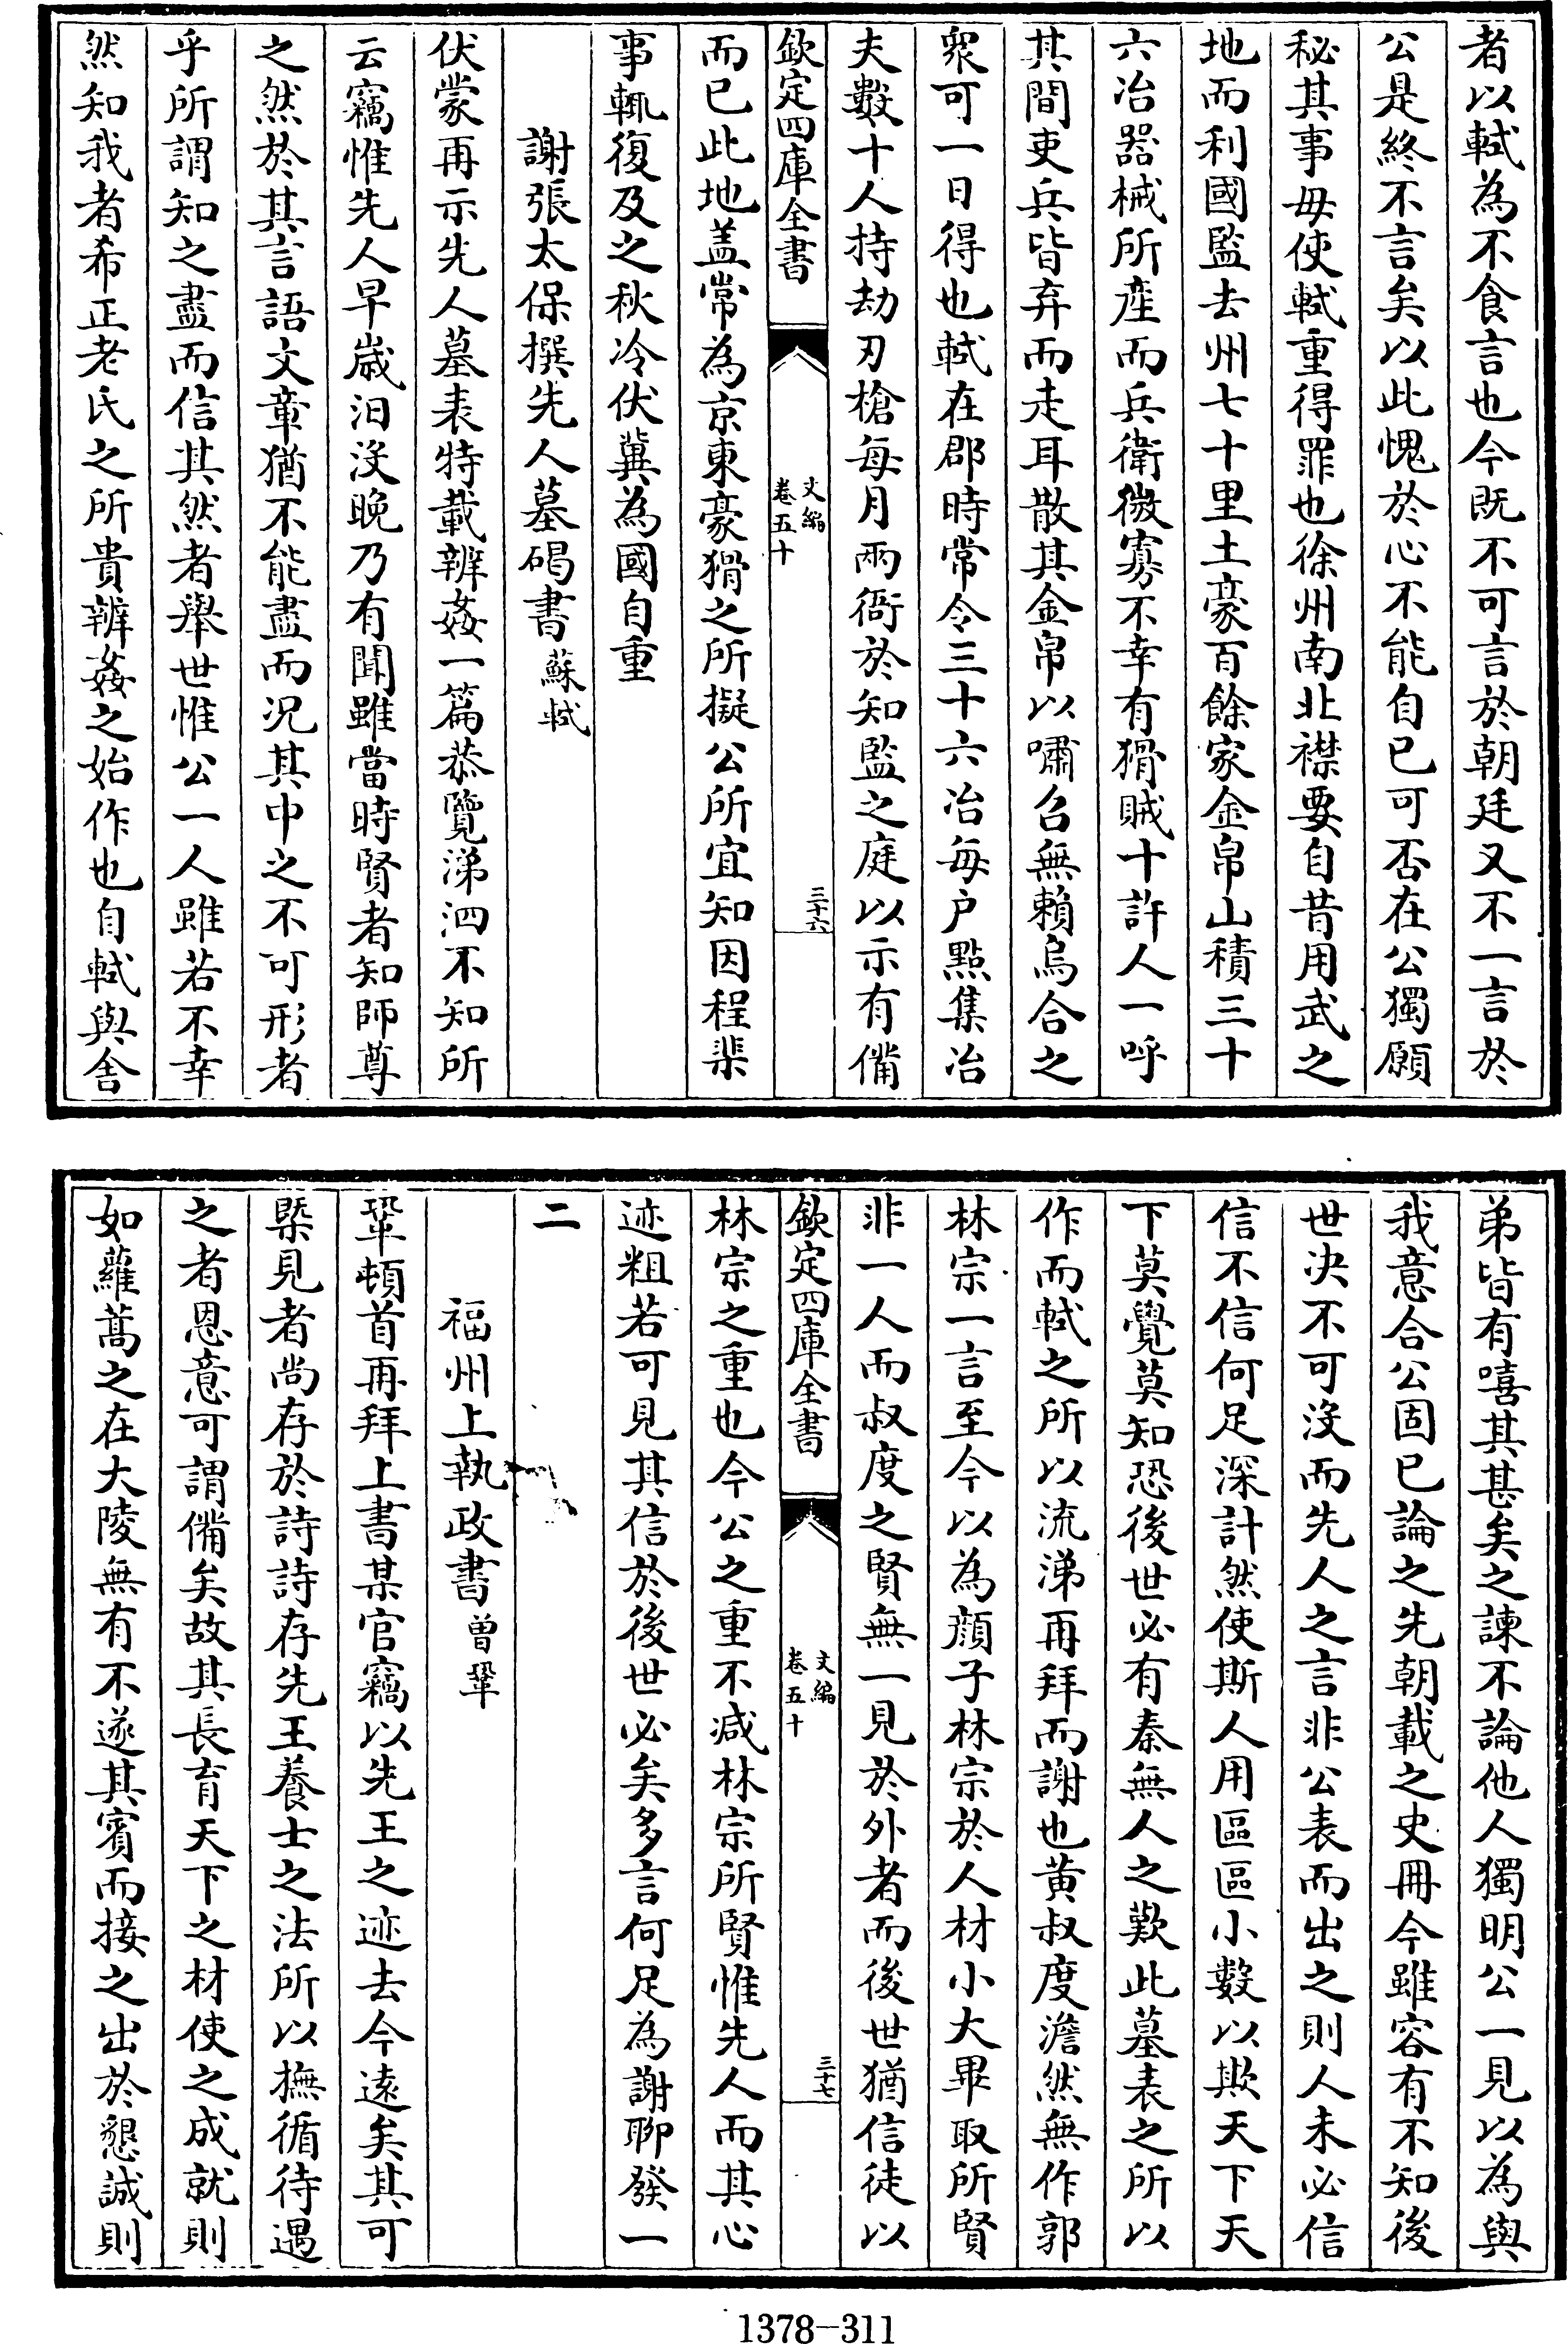 者以軾為不食言也今既不可言於朝廷又不一言於
公是終不言矣以此愧於心不能自已可否在公獨願
秘其事毋使軾重得罪也徐州南北襟要自昔用武之
地而利國監去州七十里土豪百餘家金帛山積三十
六冶器械所産而兵衛微寡不幸有猾賊十許人一呼
其間吏兵皆弃而走耳散其金帛以嘯召無賴烏合之
衆可一日得也軾在郡時常令三十六冶每户點集冶
夫數十人持劫刃槍每月兩衙於知監之庭以示有備
欽定四庫全書
文編
卷五十
三十六
而已此地盖常為京東豪猾之所擬公所宜知因程棐
事輒復及之秋冷伏冀為國自重
謝張太保撰先人墓碣書 蘇軾
伏蒙再示先人墓表特載辨姦一篇恭覽涕泗不知所
云竊惟先人早歲汩沒晚乃有聞雖當時賢者知師尊
之然於其言語文章猶不能盡而况其中之不可形者
乎所謂知之盡而信其然者舉世惟公一人雖若不幸
然知我者希正老氏之所貴辨姦之始作也自軾與舍
弟皆有嘻其甚矣之諫不論他人獨明公一見以為與
我意合公固已論之先朝載之史冊今雖容有不知後
世决不可沒而先人之言非公表而出之則人未必信
信不信何足深計然使斯人用區區小數以欺天下天
下莫覺莫知恐後世必有秦無人之歎此墓表之所以
作而軾之所以流涕再拜而謝也黄叔度澹然無作郭
林宗一言至今以為顔子林宗於人材小大畢取所賢
非一人而叔度之賢無一見於外者而後世猶信徒以
欽定四庫全書
文編
卷五十
三十七
林宗之重也今公之重不减林宗所賢惟先人而其心
迹粗若可見其信於後世必矣多言何足為謝聊發一
二
福州上執政書 曾鞏
鞏頓首再拜上書某官竊以先王之迹去今遠矣其可
槩見者尚存於詩詩存先王養士之法所以撫循待遇
之者恩意可謂備矣故其長育天下之材使之成就則
如蘿蒿之在大陵無有不遂其賓而接之出於懇誠則
1378-311